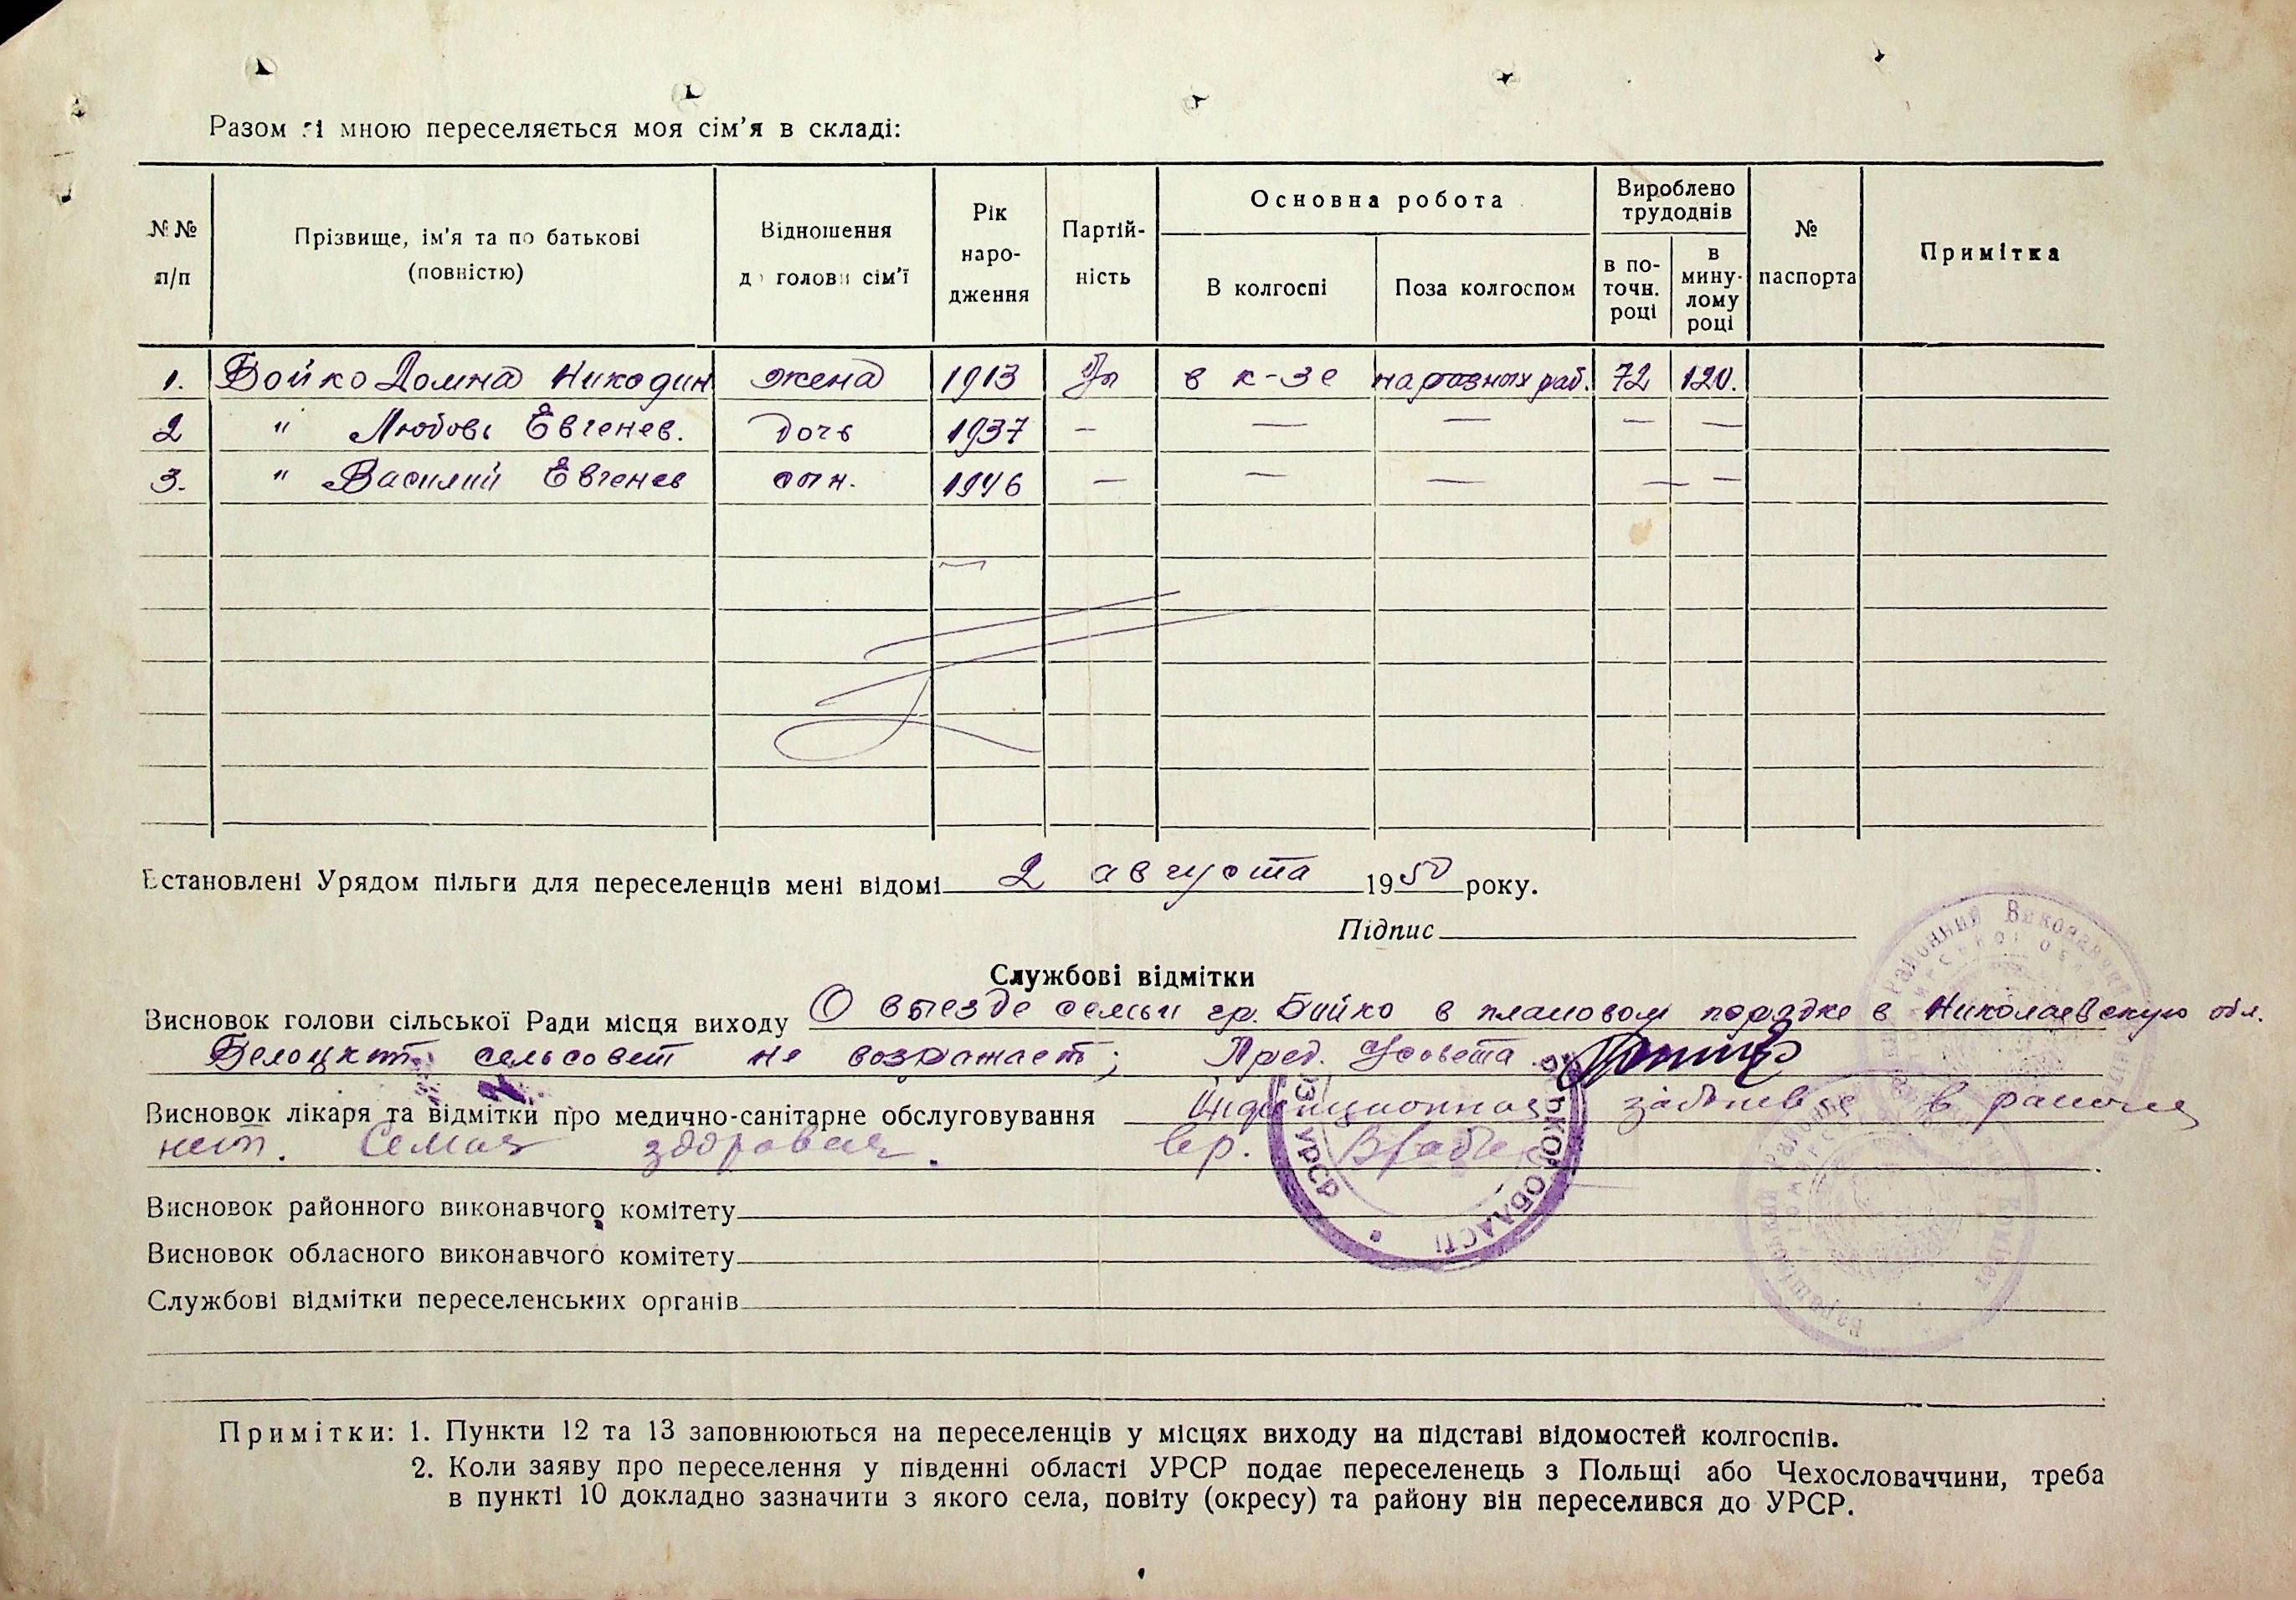 Разом зі мною переселяється моя сім'я в складі:
№№ п/п
Прізвище, ім'я та по батькові (повністю)
Відношення до голови сім'ї
Рік народження
Партійність
Основна робота
В колгоспі
Поза колгоспом
Вироблено трудоднів
в поточн. році
в минулому році
№ паспорта
Примітка
1. Бойко Домна Никодим жена 1913 в к-зе на разных раб. 72 120.
2 " Любовь Евгенев. дочь 1937 — — — — —
3. " Василий Евгенев сын. 1946 — — — — —
Встановлені Урядом пільги для переселенців мені відомі 2 августа 1950 року.
Підпис
Службові відмітки
Висновок голови сільської Ради місця виходу О выезде семьи гр. Бойко в плановом порядке в Николаевскую обл.
Белоцкит. сельсовет не возражает; Пред. с/совета
Висновок лікаря та відмітки про медично-санітарне обслуговування Инфекционных заболев в районе
нет. Семья здоровая. вр.
Висновок районного виконавчого комітету
Висновок обласного виконавчого комітету
Службові відмітки переселенських органів
Примітки: 1. Пункти 12 та 13 заповнюються на переселенців у місцях виходу на підставі відомостей колгоспів.
2. Коли заяву про переселення у південні області УРСР подає переселенець з Польщі або Чехословаччини, треба
в пункті 10 докладно зазначити з якого села, повіту (окресу) та району він переселився до УРСР.
УРСР
ОБЛАСТІ
Районний Виконавчий